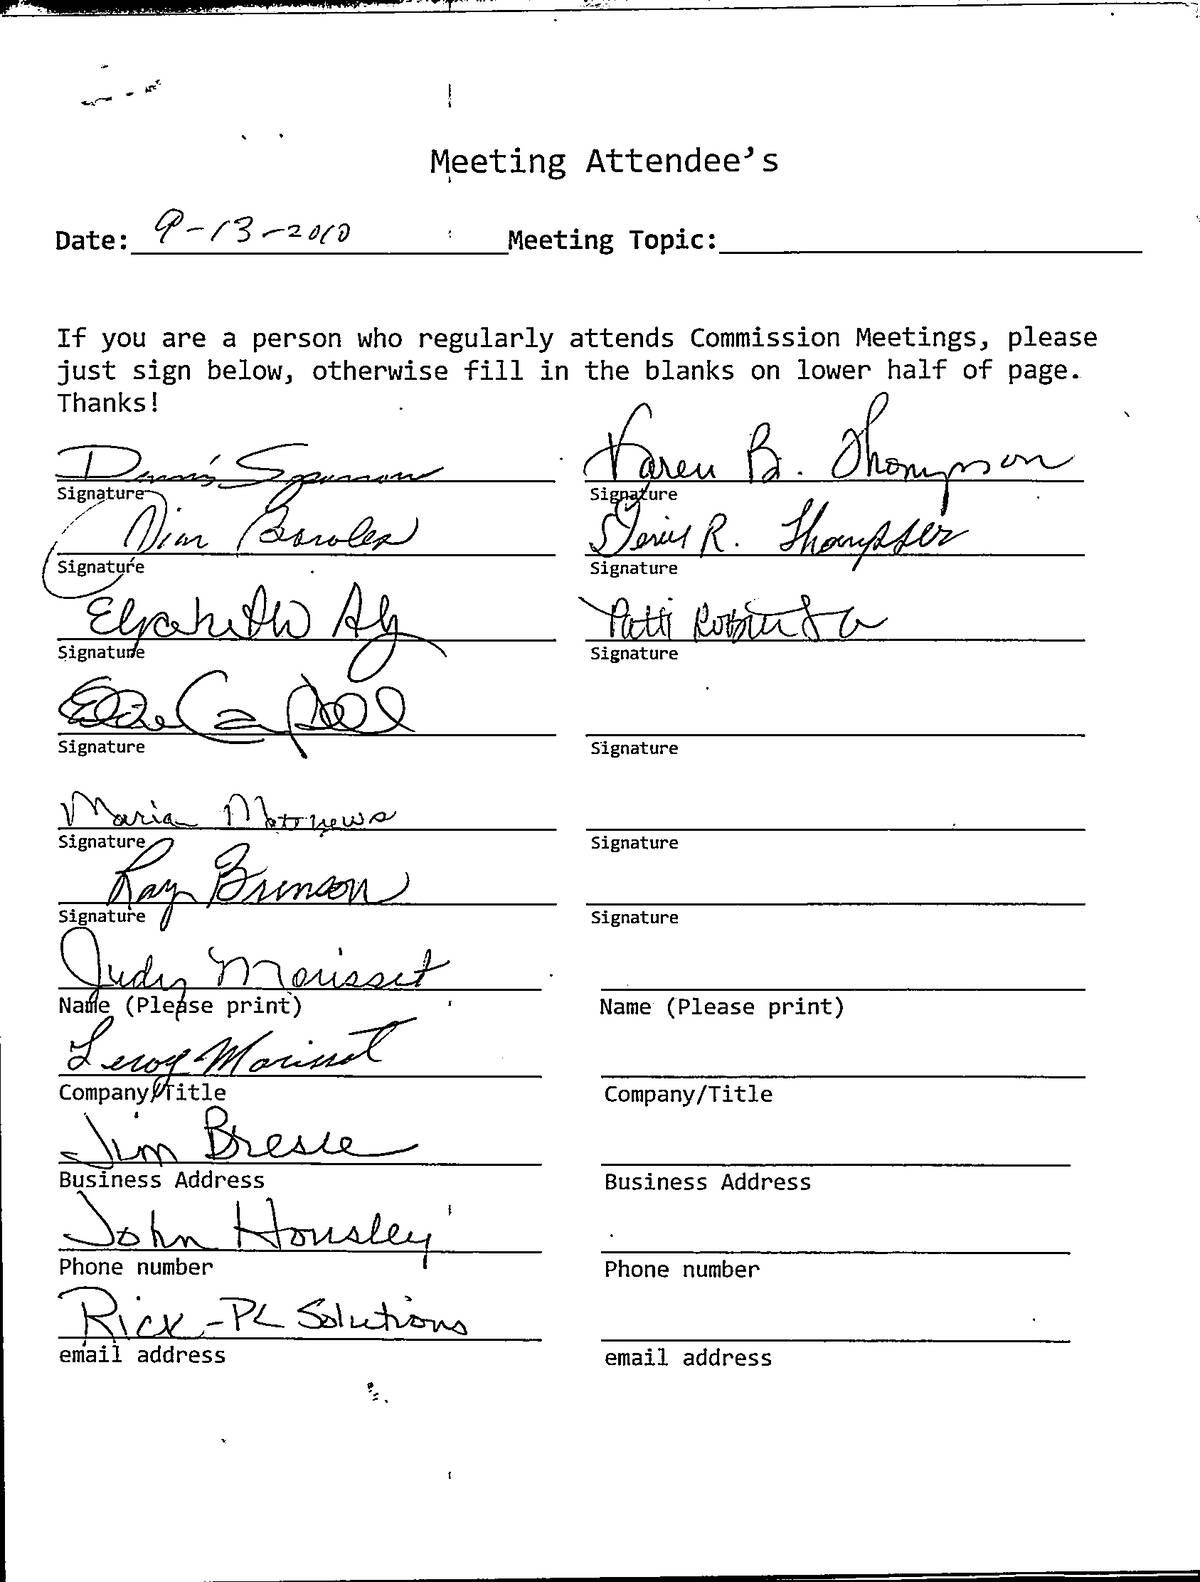 Meeting Attendee's
Date: 9-13-2010 Meeting Topic:
If you are a person who regularly attends Commission Meetings, please
just sign below, otherwise fill in the blanks on lower half of page.
Thanks!
Dennis Karen B. Thompson
Signature Signature
R.
Signature Signature
Elizabeth Aly Patti
Signature Signature
Signature Signature
Maria Matthews
Signature Signature
Ray Brunson
Signature Signature
Judy Morisset
Name (Please print) Name (Please print)
Leroy Morisset
Company/Title Company/Title
Jim Bresie
Business Address Business Address
John Housley
Phone number Phone number
Rick - PC Solutions
email address email address